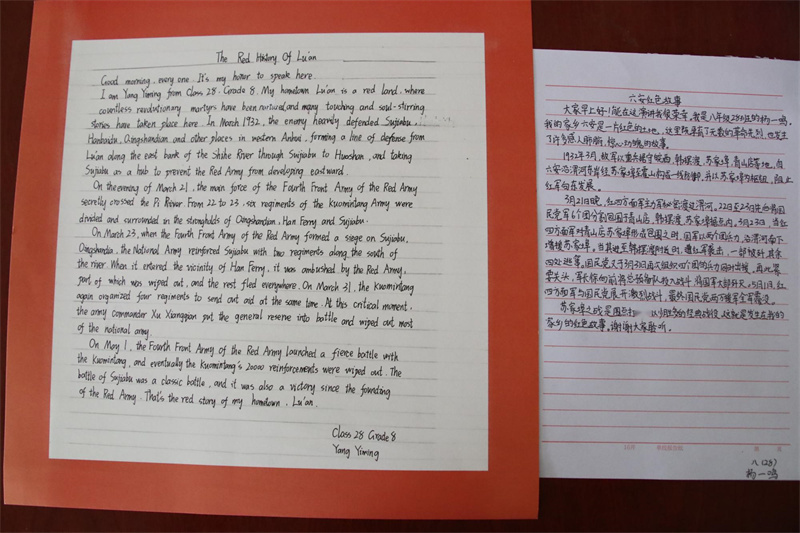 The Red History Of Lu'an
Good morning, every one. It's my honor to speak here.
I am Yang Yiming from Class 28, Grade 8. My hometown Lu'an is a red land, where
countless revolutionary martyrs have been nurtured, and many touching and soul-stirring
stories have taken place here. In March 1932, the enemy heavily defended Sujiabu,
Hanbaidu, Qingshandian and other places in western Anhui, forming a line of defense from
Lu'an along the east bank of the Shihe River through Sujiabu to Huoshan, and taking
Sujiabu as a hub to prevent the Red Army from developing eastward.
On the evening of March 21, the main force of the Fourth Front Army of the Red Army
secretly crossed the Pi River. From 22 to 23, six regiments of the kuomintang Army were
divided and surrounded in the strongholds of Qingshandian, Han Ferry and Sujiabu.
On March 23, when the Fourth Front Army of the Red Army formed a siege on Sujiabu,
Qingshandia, the National Army reinforced Sujiabu with two regiments along the south of
the river. When it entered the vicinity of Han Ferry, it was ambushed by the Red Army,
part of which was wiped out, and the rest fled everywhere. On March 31, the kuomintang
again organized four regiments to send out aid at the same time. At this critical moment,
the army commander Xu Xiangqian put the general reserve into battle and wiped out most
of the national army.
On May 1, the Fourth Front Army of the Red Army launched a fierce battle with
the kuomintang, and eventually the Kuomintang's 20000 reinforcements were wiped out. The
battle of Sujiabu was a classic battle, and it was also a victory since the founding
of the Red Army. That's the red story of my hometown, Lu'an.
Class 28 Grade 8
Yang Yiming
六安红色故事
大家早上好!能在这演讲有很荣幸,我是八年级28班的杨一鸣,
我的家乡六安是一片红色的土地,这里孕育了无数的革命先烈,也发生
了许多感人肺腑,惊心动魄的故事。
1932年3月,敌军以重兵据守皖西,韩摆渡,苏家埠,青山店等地,自
六安沿淠河东岸经苏家埠至霍山构成一线防御,并以苏家埠为枢纽,阻止
红军向东发展。
3月21日晚,红四方面军主力军秘密渡过淠河。22日至23日先将国
民党军6个团分割包围于青山店,韩摆渡,苏家埠据点内。3月23日,当红
四方面军对青山店苏家埠形成包围之时,国军以两个团兵力,沿淠河南下
增援苏家埠。当其进至韩摆渡附近时,遭红军袭击,一部被歼,其余
四处逃窜。国民党又于3月31日再次组织四个团的兵力同时出援。在此紧
要关头,军长徐向前将总预备队投入战斗,将国军大部歼灭。5月1日,红
四方面军与国民党展开激烈战斗,最终国民党两万援军全军覆没。
苏家埠之战是围点打 以相受的经典战役,这就是发生在我的
家乡的红色故事。谢谢大家聆听。
八(28)
杨一鸣